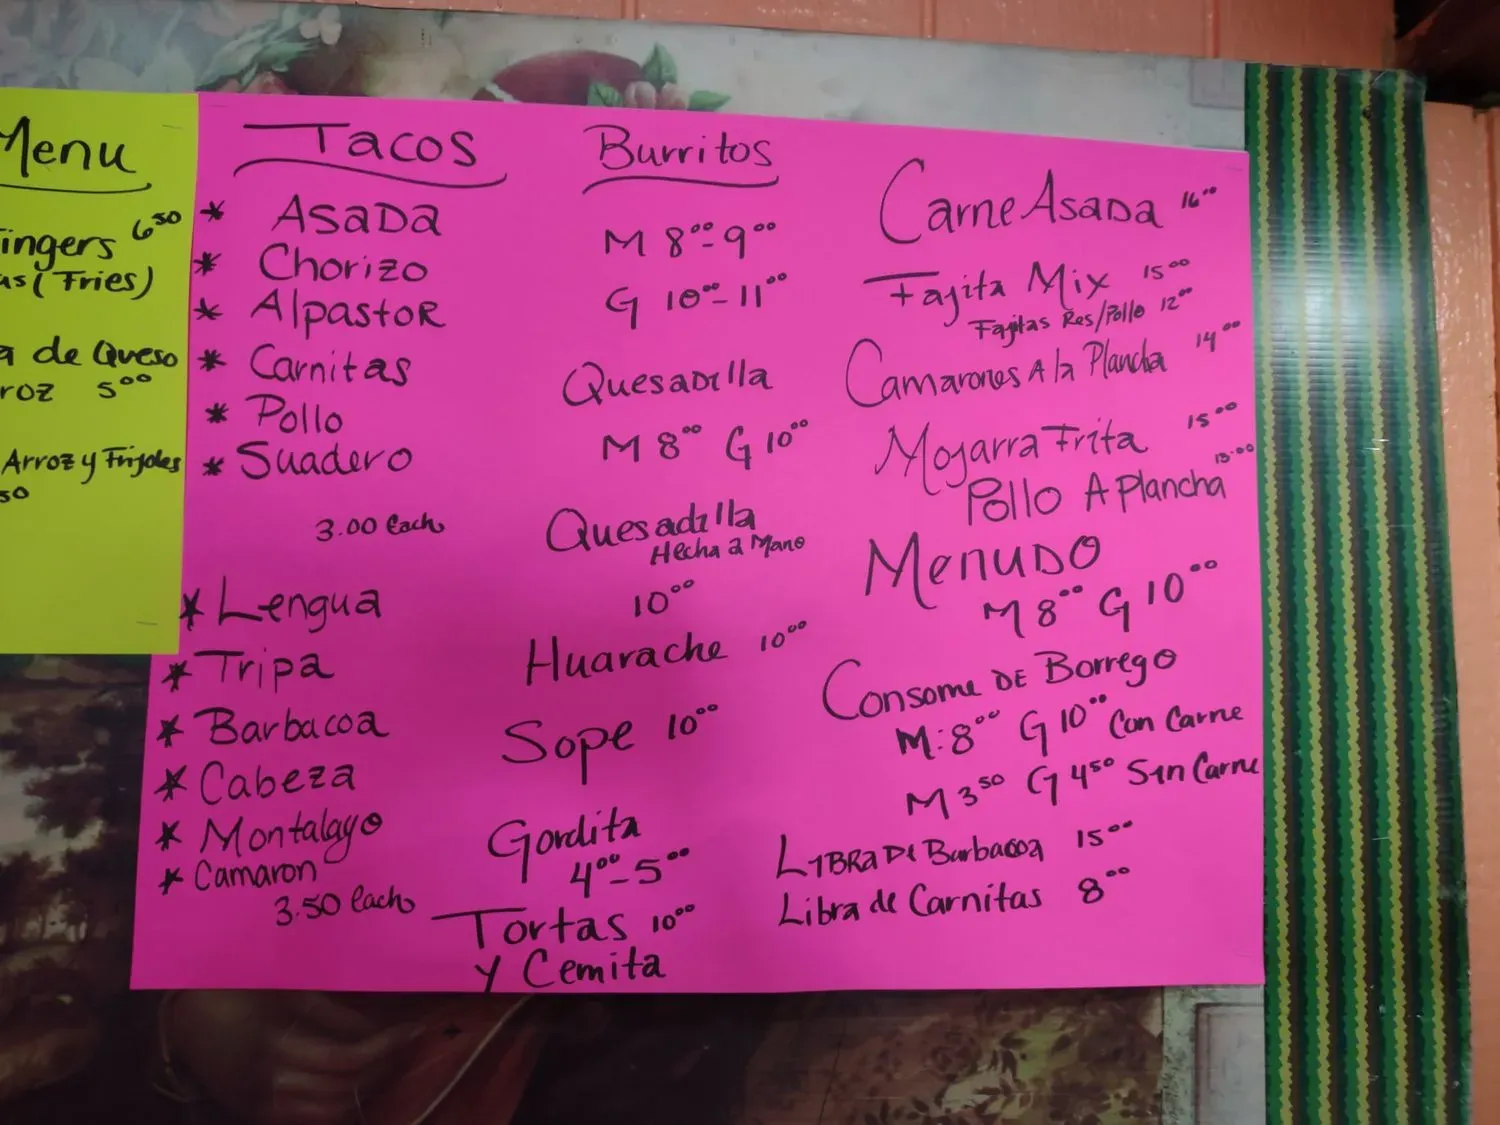 Menu
ingers 6 50
as (Fries)
a de Queso
roz 5 00
Arroz y Frijoles
50
Tacos
* Asada
* Chorizo
* Alpastor
* Carnitas
* Pollo
* Suadero
3.00 Each
* Lengua
* Tripa
* Barbacoa
* Cabeza
* Montalayo
* Camaron
3.50 Each
Burritos
M 8 00 - 9 00
G 10 00 - 11 00
Quesadilla
M 8 00 G 10 00
Quesadilla
Hecha a Mano
10 00
Huarache 10 00
Sope 10 00
Gordita
4 00 - 5 00
Tortas 10 00
y Cemita
Carne Asada 16 00
Fajita Mix 15 00
Fajitas Res/Pollo 12 00
Camarones A la Plancha 14 00
Mojarra Frita 15 00
Pollo A Plancha 13.00
Menudo
M 8 00 G 10 00
Consome DE Borrego
M: 8 00 G 10 00 Con Carne
M 3 50 G 4 50 Sin Carne
Libra De Barbacoa 15 00
Libra de Carnitas 8 00